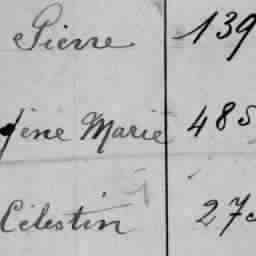 Pierre 139
gène Marie 485
Célestin 273